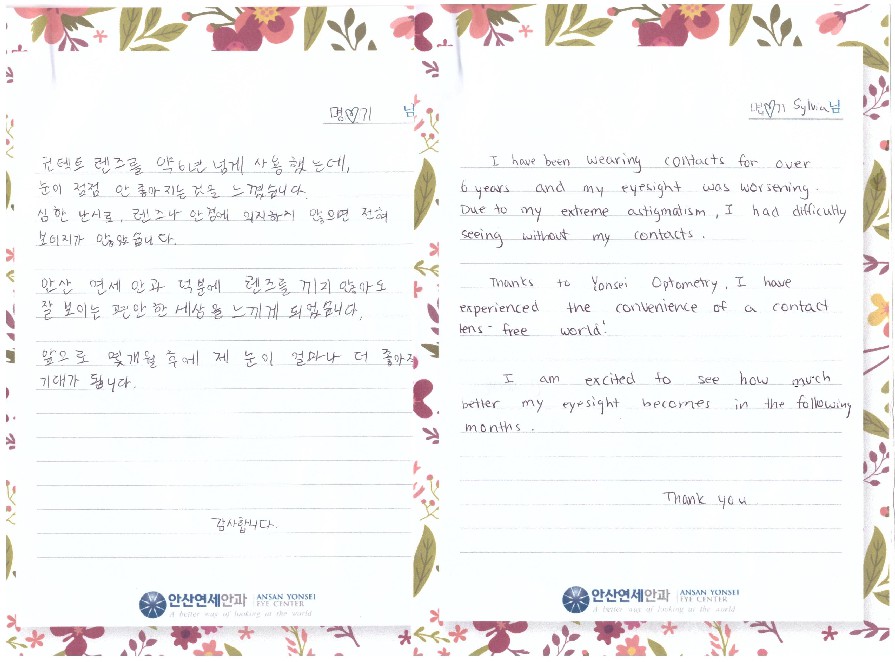 명♡기 님
컨텍트 렌즈를 약 6년 넘게 사용했는데,
눈이 점점 안 좋아지는것을 느꼈습니다.
심한 난시로, 렌즈나 안경에 의지하지 않으면 전혀
보이지가 않았습니다.
안산 연세 안과 덕분에 렌즈를 끼지 않아도
잘 보이는 편안한 세상을 느끼게 되었습니다.
앞으로 몇개월 후에 제 눈이 얼마나 더 좋아지
기대가 됩니다.
감사합니다.
안산연세안과 ANSAN YONSEI
EYE CENTER
A better way of looking at the world
명♡기 Sylvia님
I have been wearing contacts for over
6 years and my eyesight was worsening.
Due to my extreme astigmatism, I had difficulty
seeing without my contacts.
Thanks to Yonsei Optometry, I have
experienced the convenience of a contact
lens-free world!
I am excited to see how much
better my eyesight becomes in the following
months.
Thank you
안산연세안과 ANSAN YONSEI
EYE CENTER
A better way of looking at the world